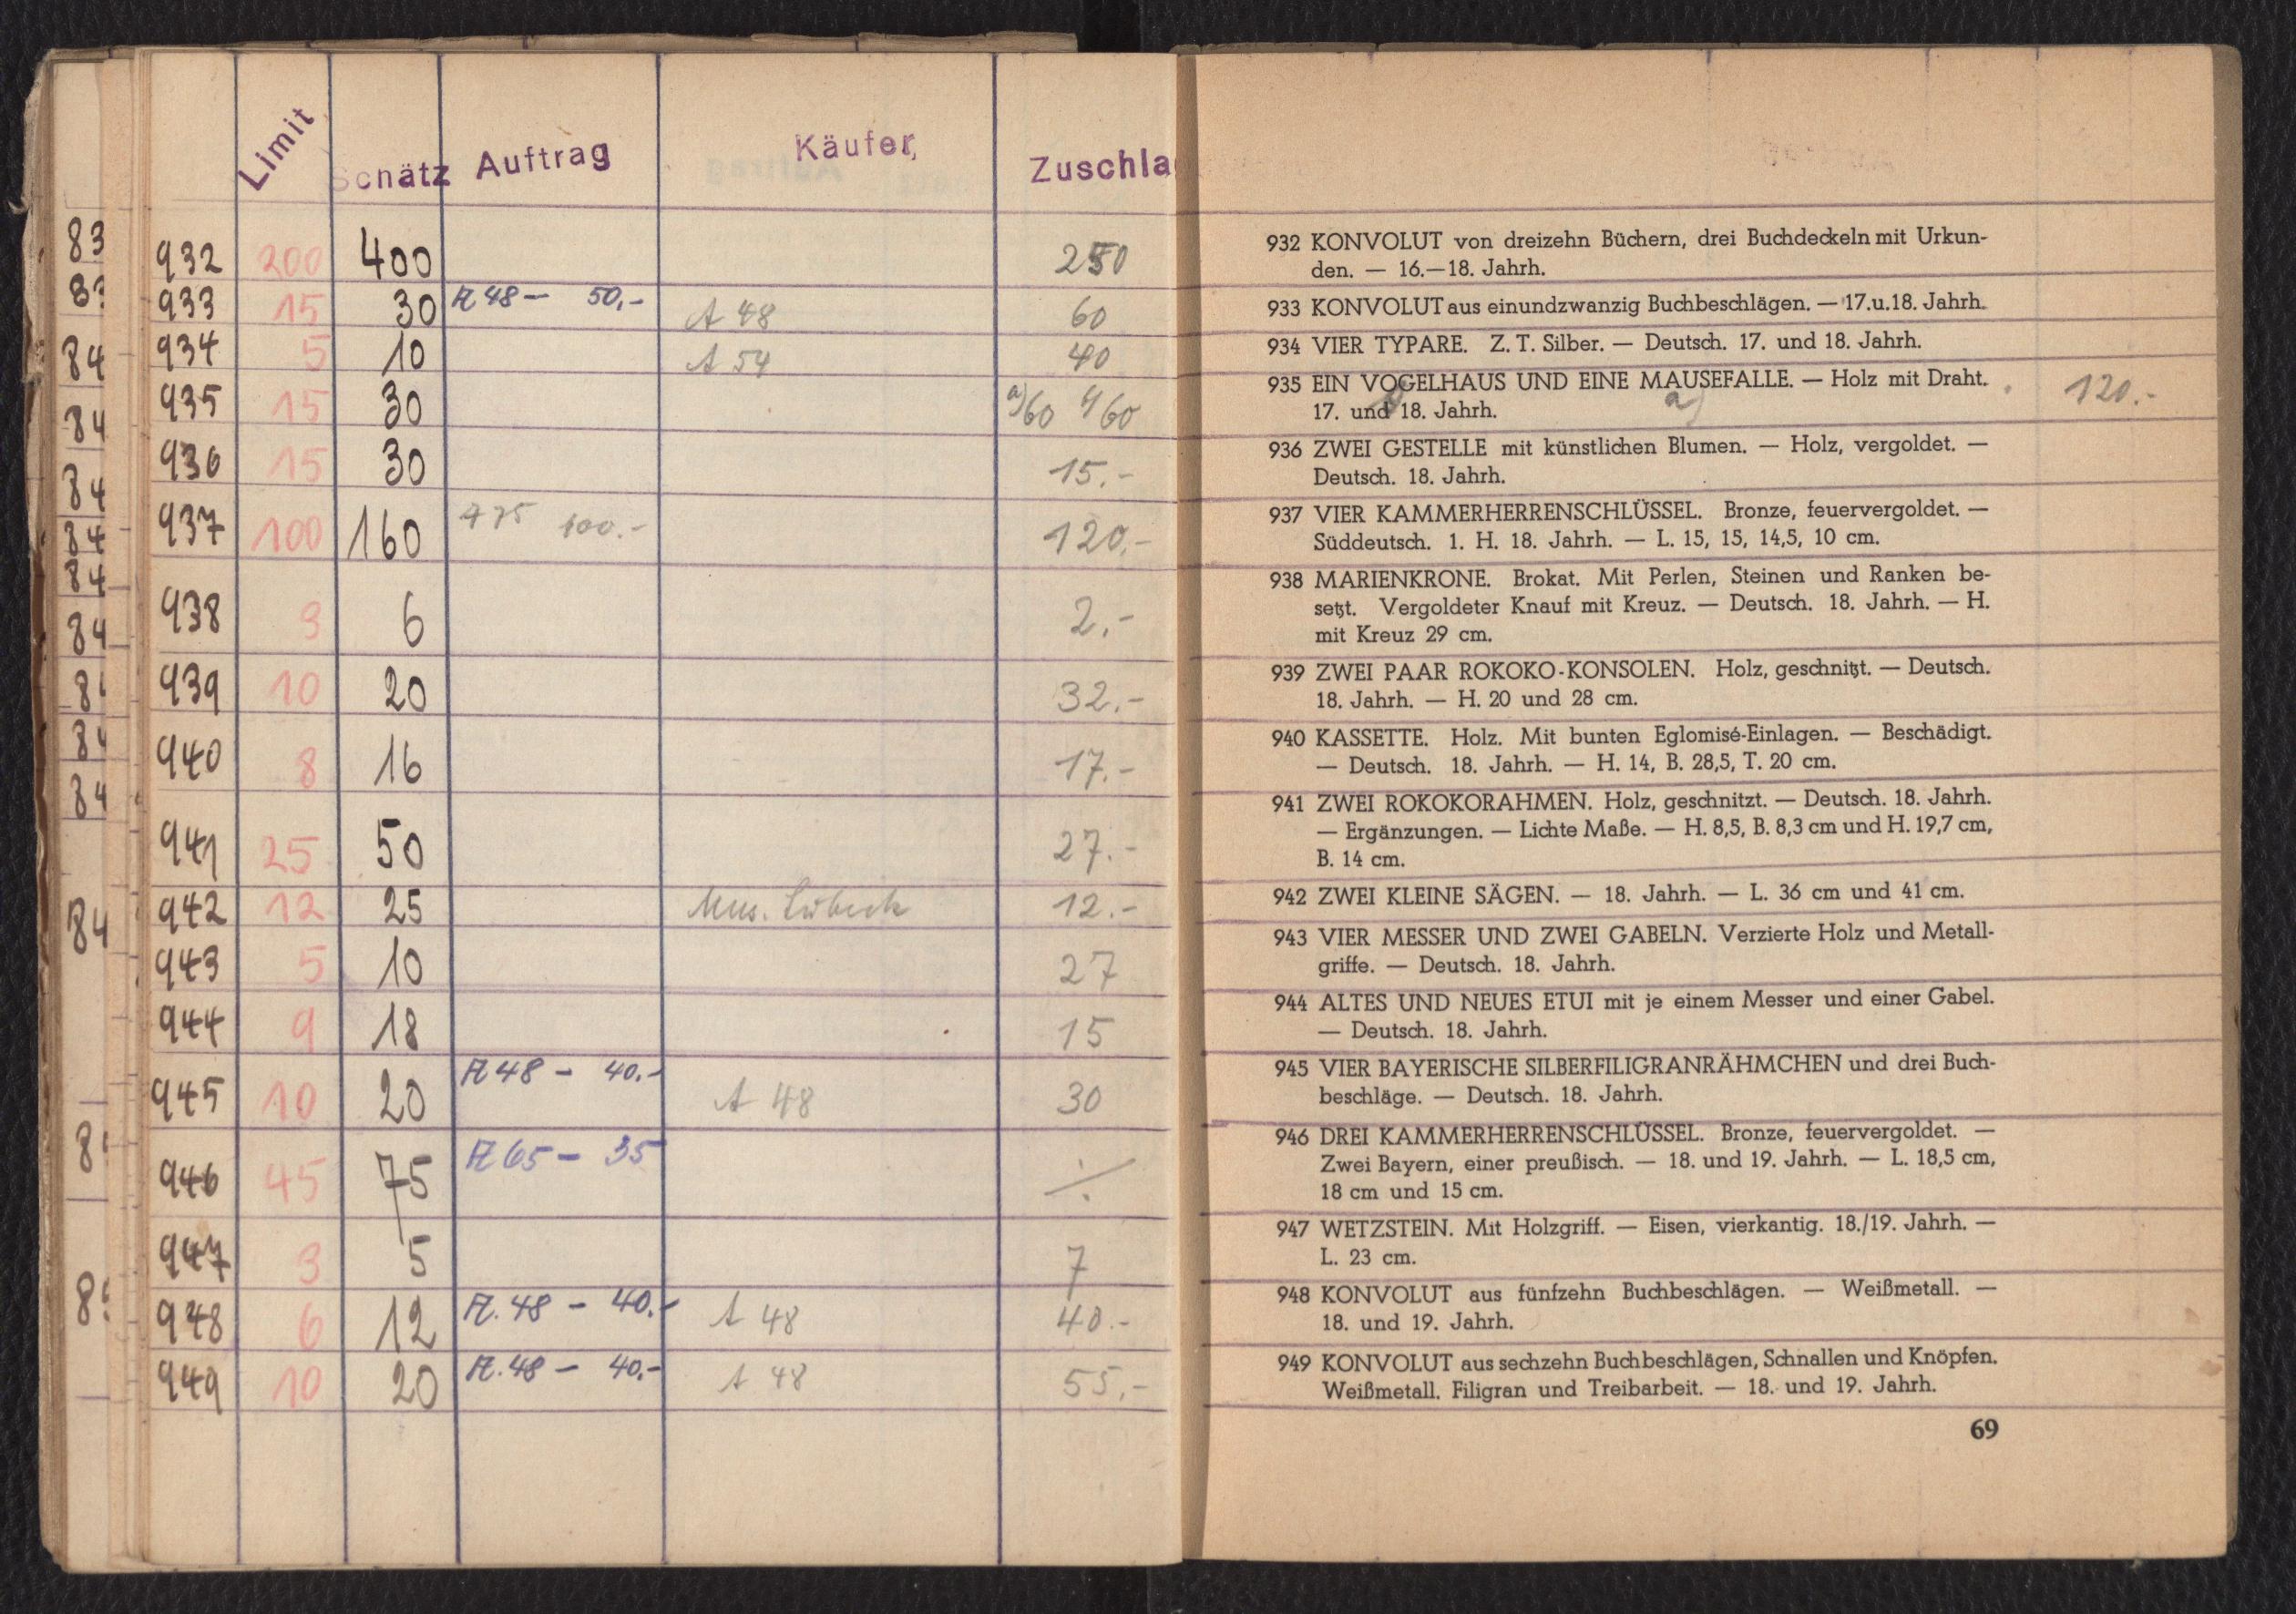 Limit Schätz Auftrag Käufer, Zuschla
932 200 400 250
933 15 30 A 48 — 50,- A 48 60
934 5 10 A 54 40
935 15 30 a) 60 60
936 15 30 15.-
937 100 160 A 75 100.- 120,-
938 3 6 2.-
939 10 20 32.-
940 8 16 17.-
941 25 50 27.-
942 12 25 Mus. Lübeck 12.-
943 5 10 27
944 9 18 15
945 10 20 A 48 — 40.- A 48 30
946 45 75 A 65 — 35 ./.
947 3 5 7
948 6 12 A. 48 — 40.- A 48 40.-
949 10 20 A. 48 — 40,- A 48 55.-
83
83
84
84
84
84
84
84
84
84
84
932 KONVOLUT von dreizehn Büchern, drei Buchdeckeln mit Urkun-
den. — 16.—18. Jahrh.
933 KONVOLUT aus einundzwanzig Buchbeschlägen. — 17. u. 18. Jahrh.
934 VIER TYPARE. Z. T. Silber. — Deutsch. 17. und 18. Jahrh.
935 EIN VOGELHAUS UND EINE MAUSEFALLE. — Holz mit Draht. 120.-
17. und 18. Jahrh. a)
936 ZWEI GESTELLE mit künstlichen Blumen. — Holz, vergoldet. —
Deutsch. 18. Jahrh.
937 VIER KAMMERHERRENSCHLÜSSEL. Bronze, feuervergoldet. —
Süddeutsch. 1. H. 18. Jahrh. — L. 15, 15, 14,5, 10 cm.
938 MARIENKRONE. Brokat. Mit Perlen, Steinen und Ranken be-
setzt. Vergoldeter Knauf mit Kreuz. — Deutsch. 18. Jahrh. — H.
mit Kreuz 29 cm.
939 ZWEI PAAR ROKOKO-KONSOLEN. Holz, geschnitzt. — Deutsch.
18. Jahrh. — H. 20 und 28 cm.
940 KASSETTE. Holz. Mit bunten Eglomisé-Einlagen. — Beschädigt.
— Deutsch. 18. Jahrh. — H. 14, B. 28,5, T. 20 cm.
941 ZWEI ROKOKORAHMEN. Holz, geschnitzt. — Deutsch. 18. Jahrh.
— Ergänzungen. — Lichte Maße. — H. 8,5, B. 8,3 cm und H. 19,7 cm,
B. 14 cm.
942 ZWEI KLEINE SÄGEN. — 18. Jahrh. — L. 36 cm und 41 cm.
943 VIER MESSER UND ZWEI GABELN. Verzierte Holz und Metall-
griffe. — Deutsch. 18. Jahrh.
944 ALTES UND NEUES ETUI mit je einem Messer und einer Gabel.
— Deutsch. 18. Jahrh.
945 VIER BAYERISCHE SILBERFILIGRANRÄHMCHEN und drei Buch-
beschläge. — Deutsch. 18. Jahrh.
946 DREI KAMMERHERRENSCHLÜSSEL. Bronze, feuervergoldet. —
Zwei Bayern, einer preußisch. — 18. und 19. Jahrh. — L. 18,5 cm,
18 cm und 15 cm.
947 WETZSTEIN. Mit Holzgriff. — Eisen, vierkantig. 18./19. Jahrh. —
L. 23 cm.
948 KONVOLUT aus fünfzehn Buchbeschlägen. — Weißmetall. —
18. und 19. Jahrh.
949 KONVOLUT aus sechzehn Buchbeschlägen, Schnallen und Knöpfen.
Weißmetall. Filigran und Treibarbeit. — 18. und 19. Jahrh.
69